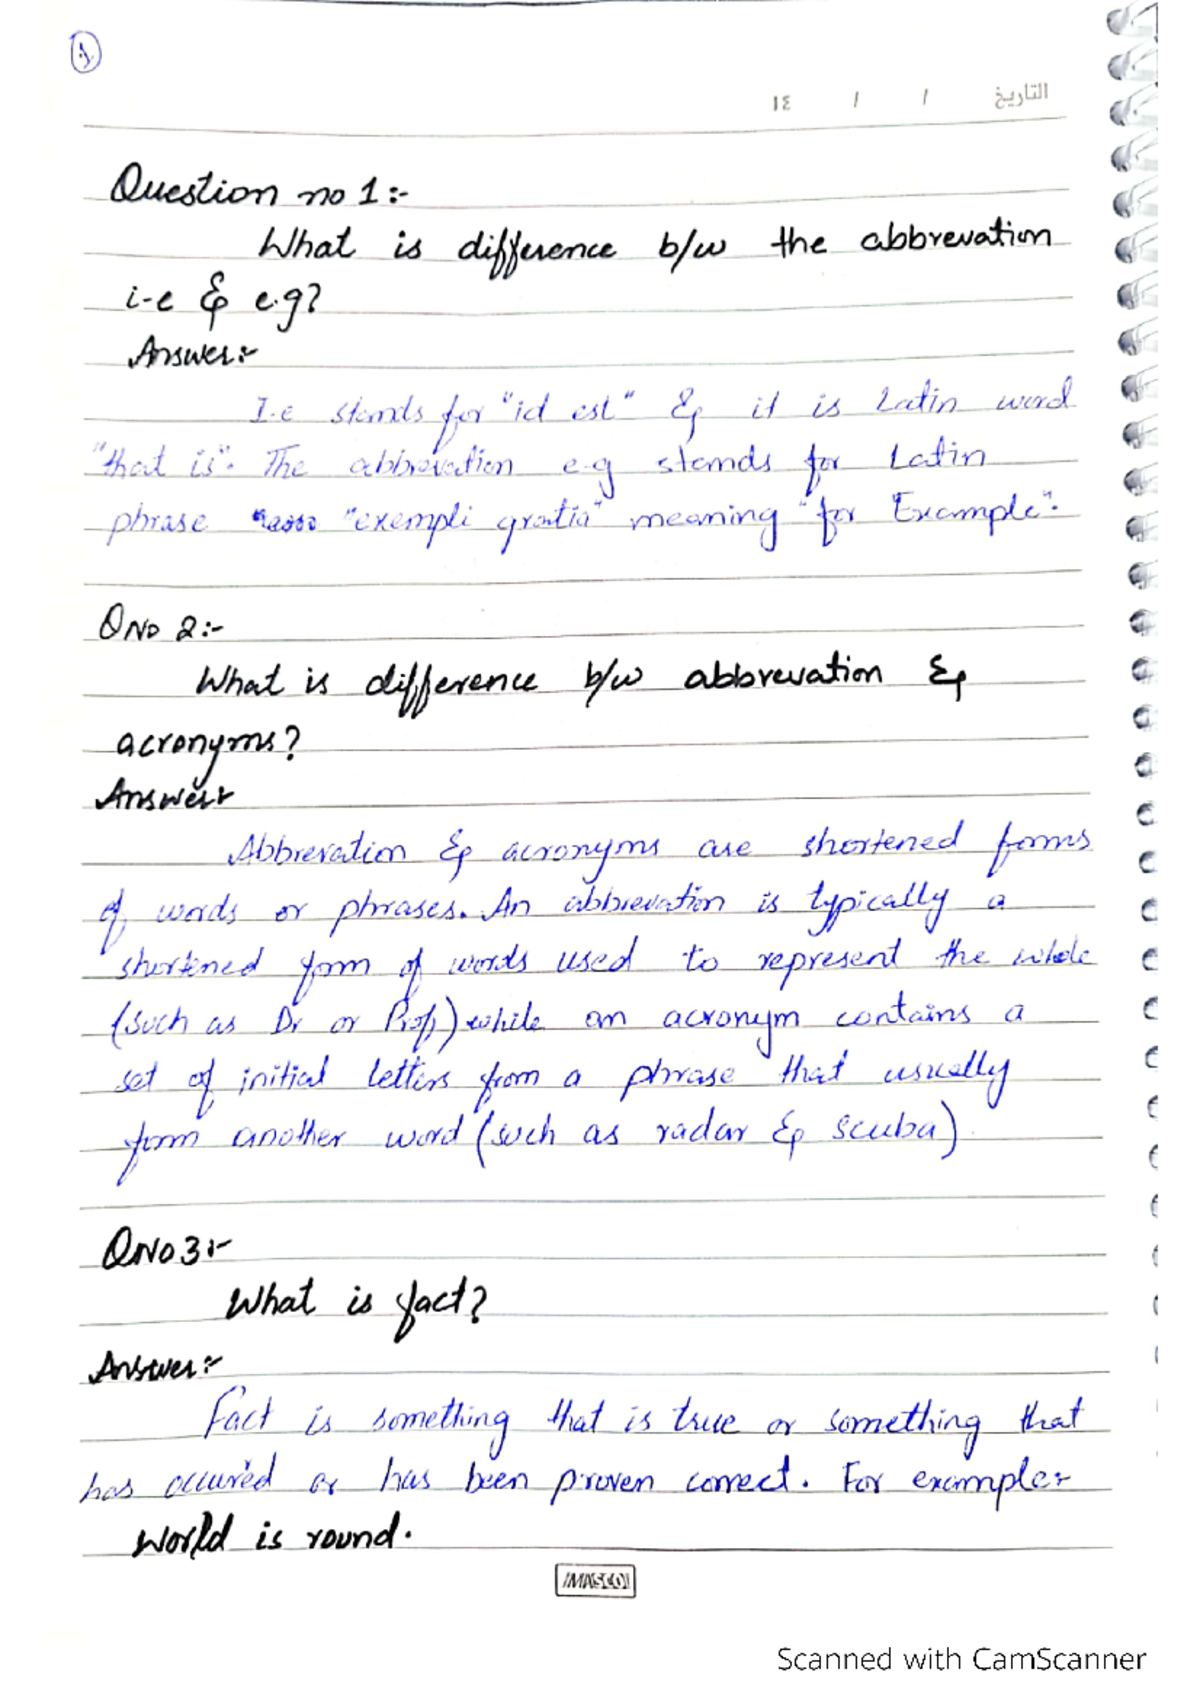 1
التاريخ / / ١٤
Question no 1:-
What is difference b/w the abbrevation
i-e & e.g?
Answer:-
I.e stands for "id est" & it is Latin word
"that is". The abbrevation e-g stands for Latin
phrase "exempli gratia" meaning "for Example".
QNO 2:-
What is difference b/w abbrevation &
acronyms?
Answer:-
Abbrevation & acronyms are shortened forms
of words or phrases. An abbrevation is typically a
shortened form of words used to represent the whole
(such as Dr or Prof) while an acronym contains a
set of initial letters from a phrase that usually
form another word (such as radar & scuba).
QNO3:-
What is fact?
Answer:-
Fact is something that is true or something that
has occured or has been proven correct. For example:-
World is round.
IMASCO
Scanned with CamScanner